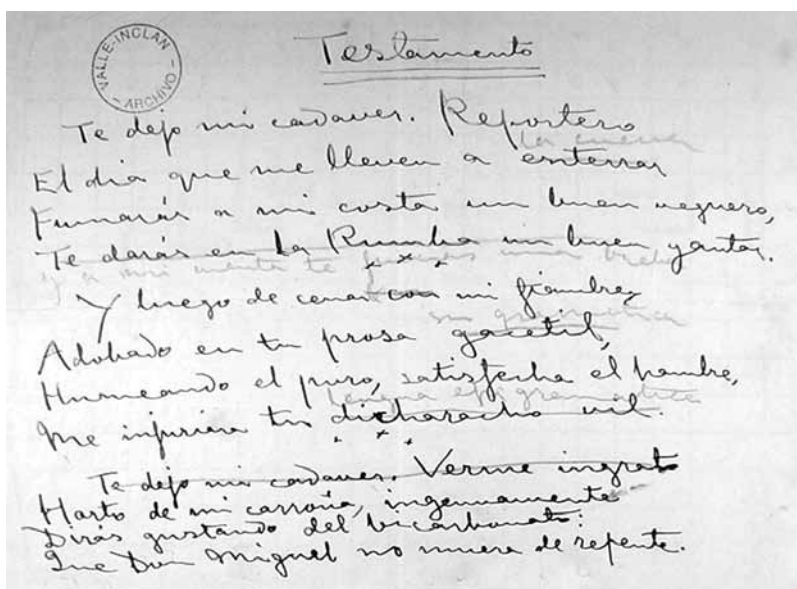 VALLE-INCLAN
- ARCHIVO -
Testamento
Te dejo mi cadaver. Reportero
El dia que me lleven a enterrar
Fumarás a mi costa un buen veguero,
Te darás en La Rumba un buen yantar.
y a mi cuenta te una
Y luego de cenar con mi fiambre,
sin gramática
Adobado en tu prosa gacetil,
Humeando el puro, satisfecha el hambre,
lengua epigramática
Me injuriara tu dicharacho vil.
Te dejo mi cadaver. Verme ingrato
Harto de mi carroña, ingenuamente
Dirás gustando del bicarbonato:
Que Don Miguel no muere de repente.